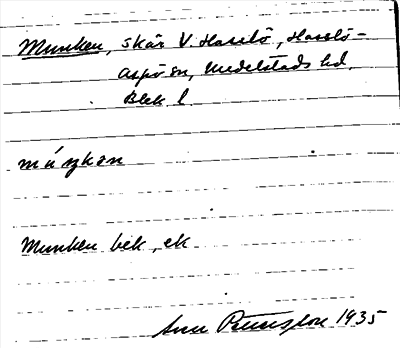 Munken, skär V. Hasslö, Hasslö-
Aspö sn, Medelstads hd.
Blek l
Munken bek., ek
1935